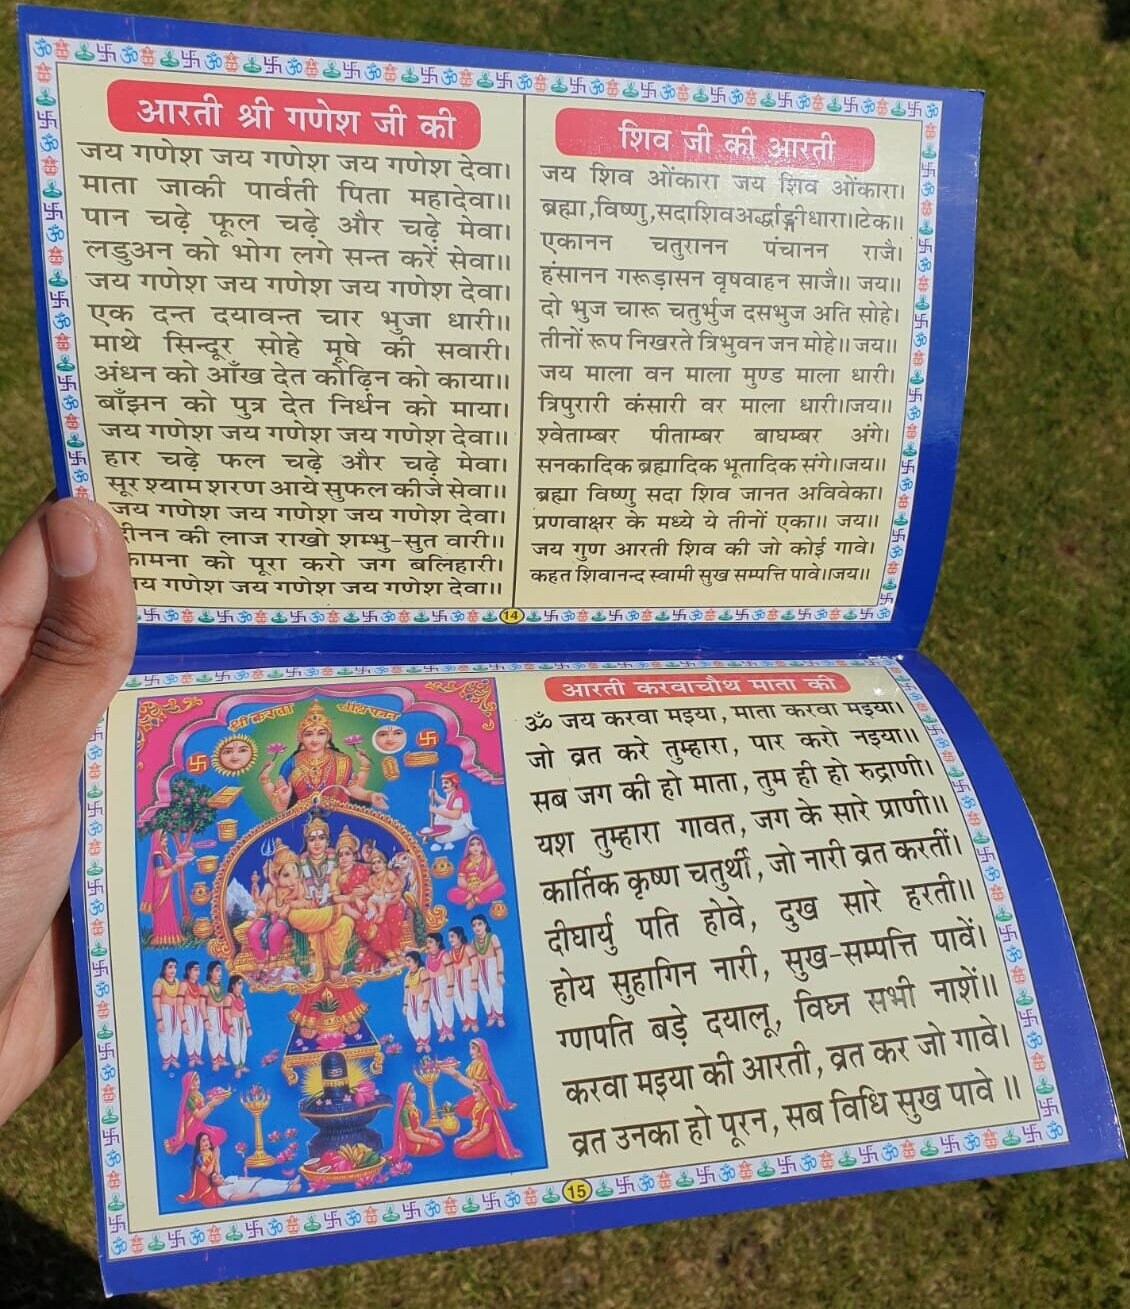 आरती श्री गणेश जी की
जय गणेश जय गणेश जय गणेश देवा।
माता जाकी पार्वती पिता महादेवा॥
पान चढ़े फूल चढ़े और चढ़े मेवा।
लडुअन को भोग लगे सन्त करें सेवा॥
जय गणेश जय गणेश जय गणेश देवा।
एक दन्त दयावन्त चार भुजा धारी॥
माथे सिन्दूर सोहे मूषे की सवारी।
अंधन को आँख देत कोढ़िन को काया॥
बाँझन को पुत्र देत निर्धन को माया।
जय गणेश जय गणेश जय गणेश देवा॥
हार चढ़े फल चढ़े और चढ़े मेवा।
सूर श्याम शरण आये सुफल कीजे सेवा॥
जय गणेश जय गणेश जय गणेश देवा।
की लाज राखो शम्भु-सुत वारी॥
को पूरा करो जग बलिहारी।
गणेश जय गणेश जय गणेश देवा॥
शिव जी की आरती
जय शिव ओंकारा जय शिव ओंकारा।
ब्रह्मा,विष्णु,सदाशिवअर्द्धाङ्गीधारा॥टेक॥
एकानन चतुरानन पंचानन राजै।
हंसानन गरूड़ासन वृषवाहन साजै॥ जय॥
दो भुज चारू चतुर्भुज दसभुज अति सोहे।
तीनों रूप निखरते त्रिभुवन जन मोहे॥ जय॥
जय माला वन माला मुण्ड माला धारी।
त्रिपुरारी कंसारी वर माला धारी॥जय॥
श्वेताम्बर पीताम्बर बाघम्बर अंगे।
सनकादिक ब्रह्मादिक भूतादिक संगे॥जय॥
ब्रह्मा विष्णु सदा शिव जानत अविवेका।
प्रणवाक्षर के मध्ये ये तीनों एका॥ जय॥
जय गुण आरती शिव की जो कोई गावे।
कहत शिवानन्द स्वामी सुख सम्पत्ति पावे॥जय॥
14
श्री करवा
आरती करवाचौथ माता की
ॐ जय करवा मइया, माता करवा मइया।
जो व्रत करे तुम्हारा, पार करो नइया॥
सब जग की हो माता, तुम ही हो रुद्राणी।
यश तुम्हारा गावत, जग के सारे प्राणी॥
कार्तिक कृष्ण चतुर्थी, जो नारी व्रत करतीं।
दीघार्यु पति होवे, दुख सारे हरती॥
होय सुहागिन नारी, सुख-सम्पत्ति पावें।
गणपति बड़े दयालू, विघ्न सभी नाशें॥
करवा मइया की आरती, व्रत कर जो गावे।
व्रत उनका हो पूरन, सब विधि सुख पावे ॥
15